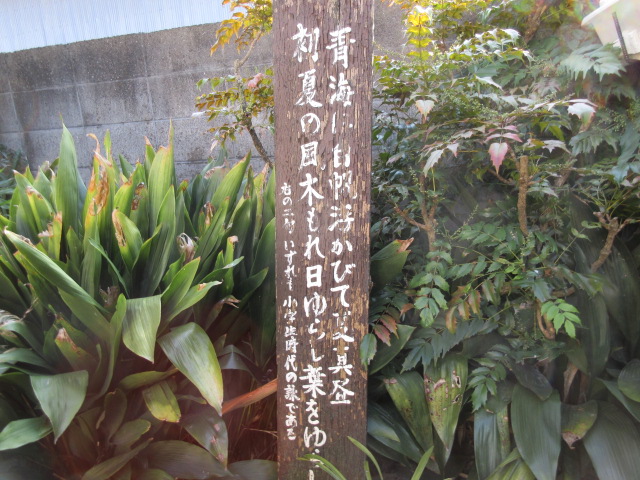 青海に白帆浮かびて真昼
初夏の風木もれ日ゆらし葉をゆ
右の二首いずれも小学生時代の歌である